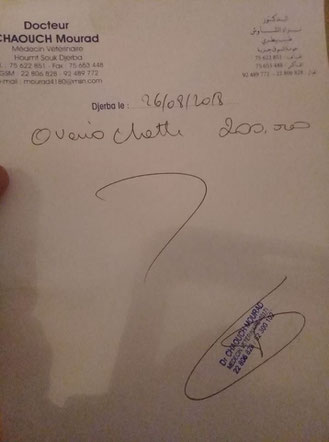 Docteur
CHAOUCH Mourad
Médecin Vétérinaire
Houmt Souk Djerba
Tél. : 75 622 851 - Fax : 75 653 448
GSM : 22 806 828 - 92 489 772
e-mail : mourad4180@msn.com
الدكتور
مراد الشاوش
75 622 851 :
75 653 448 :
92 489 772 - 22 806 828 :
Djerba le : 26/08/2018
Ovario chatte 200,000
Dr CHAOUCH MOURAD
MEDECIN VETERINAIRE
22 806 828